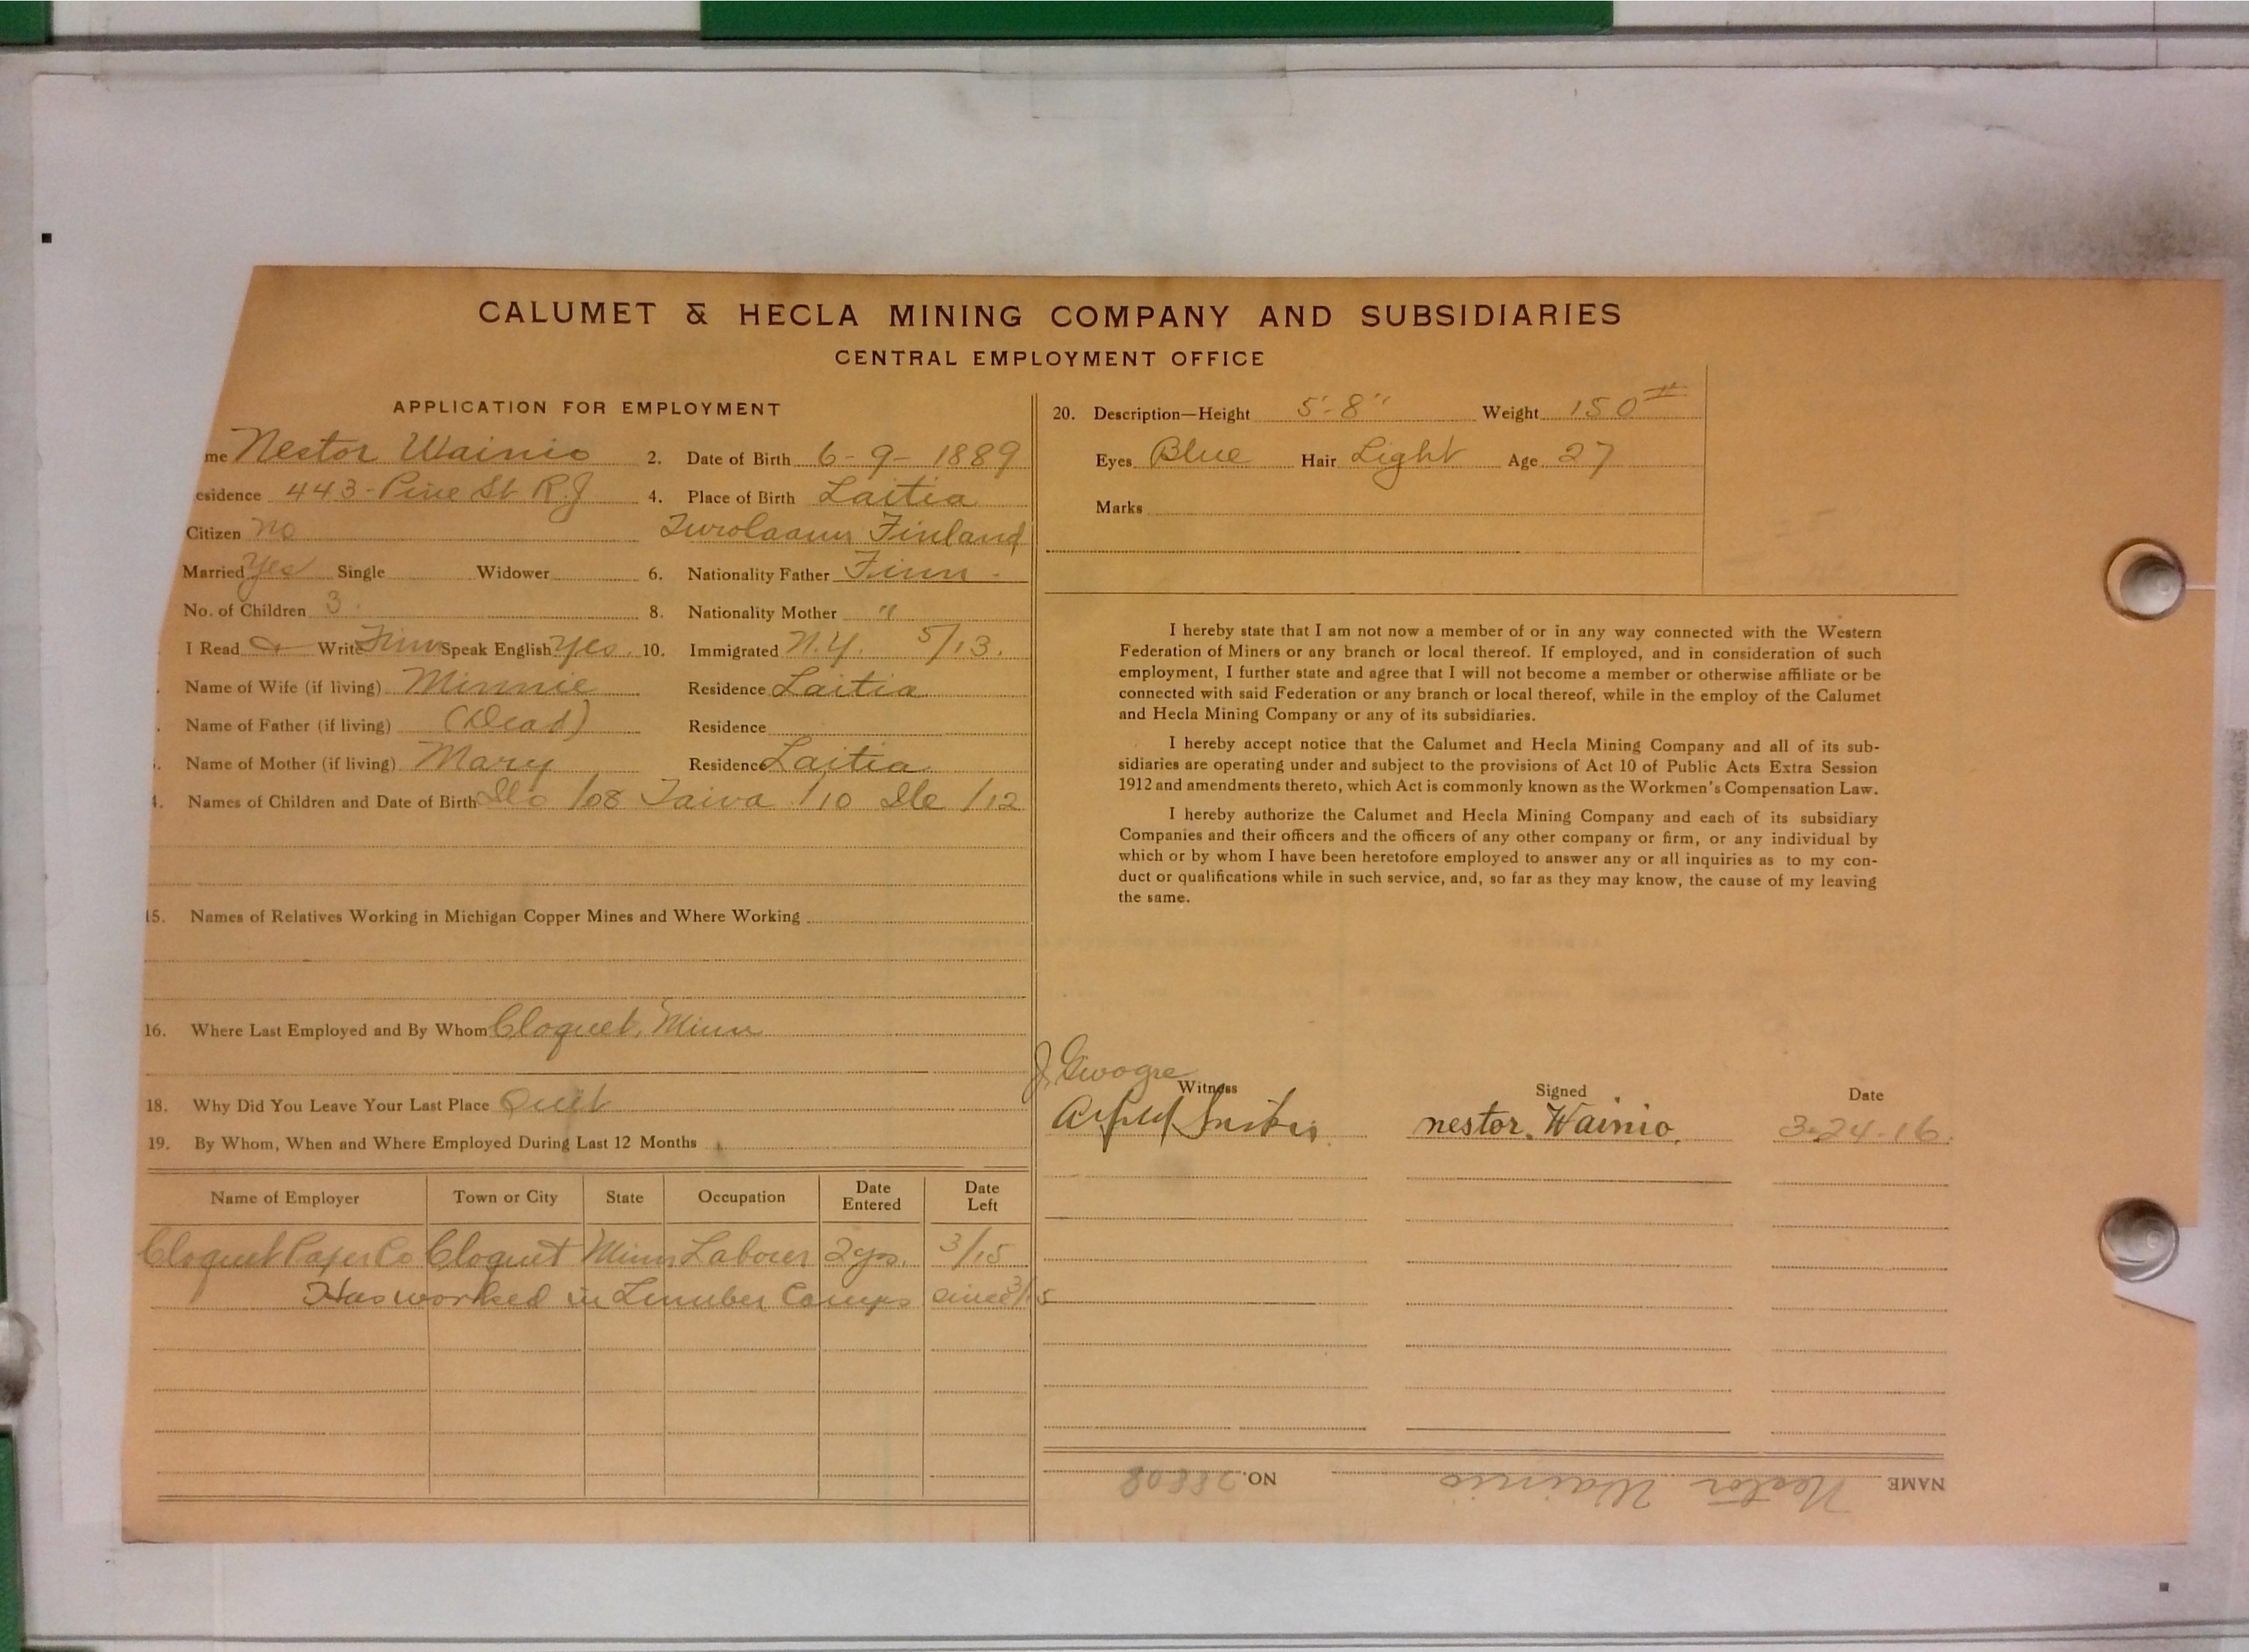 CALUMET & HECLA MINING COMPANY AND SUBSIDIARIES
CENTRAL EMPLOYMENT OFFICE
APPLICATION FOR EMPLOYMENT
me Nestor Wainio 2. Date of Birth 6-9-1889
esidence 443-Pine St R.J 4. Place of Birth Laitia
Citizen no Finland
Married Yes Single Widower 6. Nationality Father Finn -
No. of Children 3. 8. Nationality Mother "
I Read & Write Finn Speak English Yes. 10. Immigrated N.Y. 5/13.
Name of Wife (if living) Minnie Residence Laitia
Name of Father (if living) (Dead) Residence
Name of Mother (if living) Mary Residence Laitia
4. Names of Children and Date of Birth /08 /10 /12
15. Names of Relatives Working in Michigan Copper Mines and Where Working
16. Where Last Employed and By Whom Cloquet, Minn
18. Why Did You Leave Your Last Place Quit
19. By Whom, When and Where Employed During Last 12 Months
Name of Employer Town or City State Occupation Date Entered Date Left
Cloquet Paper Co Cloquet Minn Labourer 2yrs. 3/15
Has worked in Lumber Camps since 3/15
20. Description—Height 5'-8" Weight 150#
Eyes Blue Hair Light Age 27
Marks
I hereby state that I am not now a member of or in any way connected with the Western
Federation of Miners or any branch or local thereof. If employed, and in consideration of such
employment, I further state and agree that I will not become a member or otherwise affiliate or be
connected with said Federation or any branch or local thereof, while in the employ of the Calumet
and Hecla Mining Company or any of its subsidiaries.
I hereby accept notice that the Calumet and Hecla Mining Company and all of its sub-
sidiaries are operating under and subject to the provisions of Act 10 of Public Acts Extra Session
1912 and amendments thereto, which Act is commonly known as the Workmen's Compensation Law.
I hereby authorize the Calumet and Hecla Mining Company and each of its subsidiary
Companies and their officers and the officers of any other company or firm, or any individual by
which or by whom I have been heretofore employed to answer any or all inquiries as to my con-
duct or qualifications while in such service, and, so far as they may know, the cause of my leaving
the same.
Witness Signed Date
nestor. Wainio. 3-24-16.
NAME Nestor Wainio NO. 28808